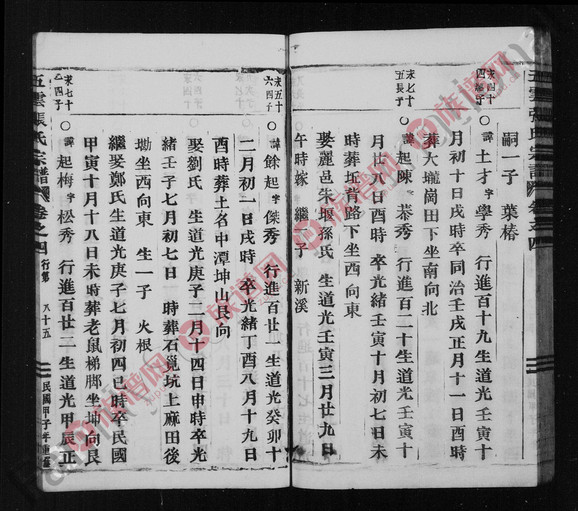 五雲張氏宗譜 卷之四
嗣一子 葉椿
求四十四 子
諱土才 字學秀 行進百十九生道光壬寅十
月初十日戌時卒同治壬戌正月十一日酉時
葬大壠崗田下坐南向北
求七十五長子
諱起陳 字恭秀 行進百二十生道光壬寅十
月廿八日酉時卒光緒壬寅十月初七日未
時葬坵背路下坐西向東
娶麗邑朱堰孫氏 生道光壬寅三月廿九日
午時嫁 繼一子 新溪
求五十六四子
諱餘起 字傑秀 行進百廿一生道光癸卯十
二月初一日戌時卒光緒丁酉八月十九日
酉時葬土名中潭坤山艮向
娶劉氏 生道光庚子二月十四日申時卒光
緒壬子七月初七日 時葬石篦坑上麻田後
坳坐西向東 生一子 火根
繼娶鄭氏生道光庚子七月初四巳時卒民國
甲寅十月十八日未時葬老鼠梯脚坐坤向艮
求七十乙四子
諱起梅 字松秀 行進百廿二生道光甲辰正
五雲張氏宗譜 卷之四 行第 八十五 民國甲子年重修